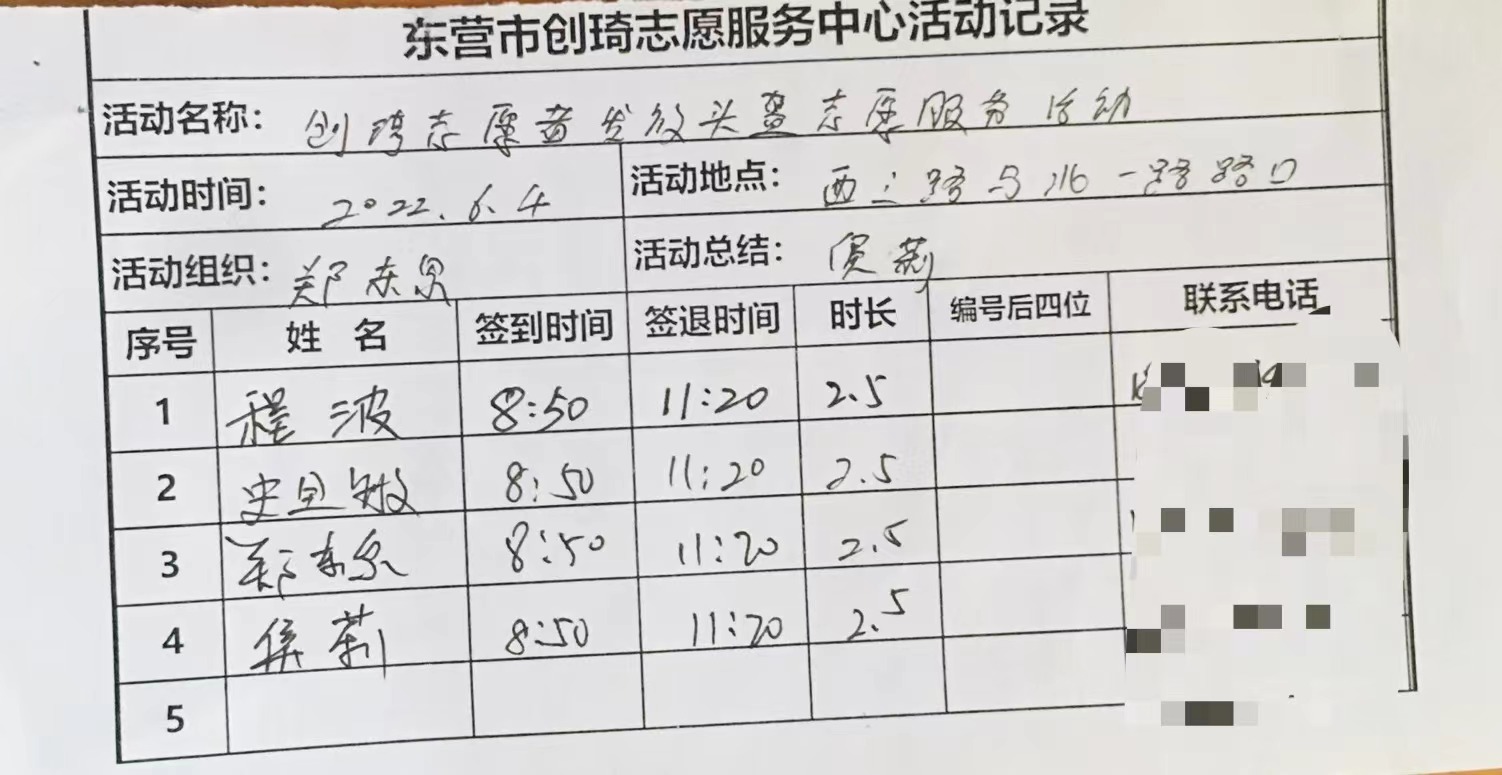 东营市创琦志愿服务中心活动记录
活动名称: 创琦志愿者发放头盔志愿服务活动
活动时间: 2022.6.4 活动地点: 西三路与北一路路口
活动组织: 郑东 活动总结: 莉
序号 姓名 签到时间 签退时间 时长 编号后四位 联系电话
1 程波 8:50 11:20 2.5
2 史 敏 8:50 11:20 2.5
3 郑东 8:50 11:20 2.5
4 莉 8:50 11:20 2.5
5